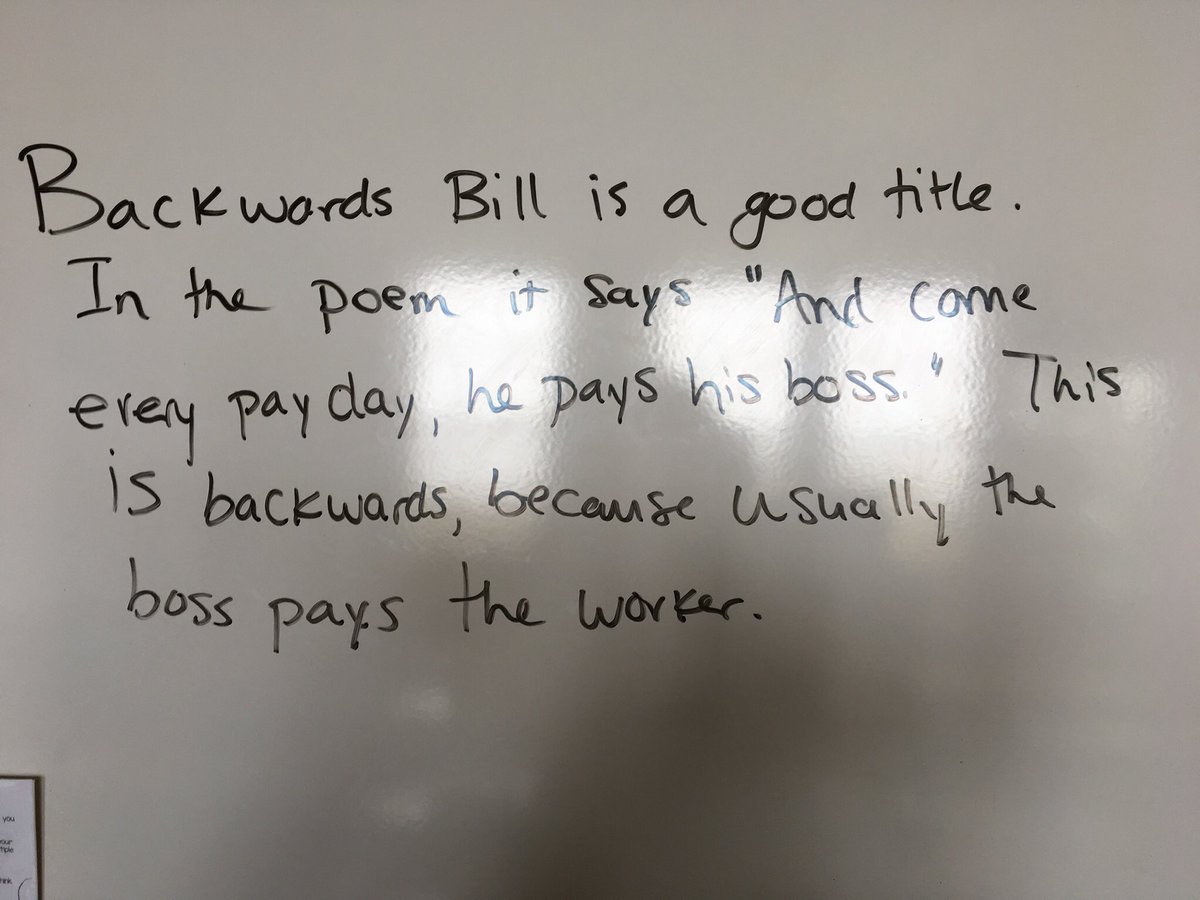 Backwards Bill is a good title.
In the poem it says "And come
every payday, he pays his boss." This
is backwards, because usually the
boss pays the worker.
you
think